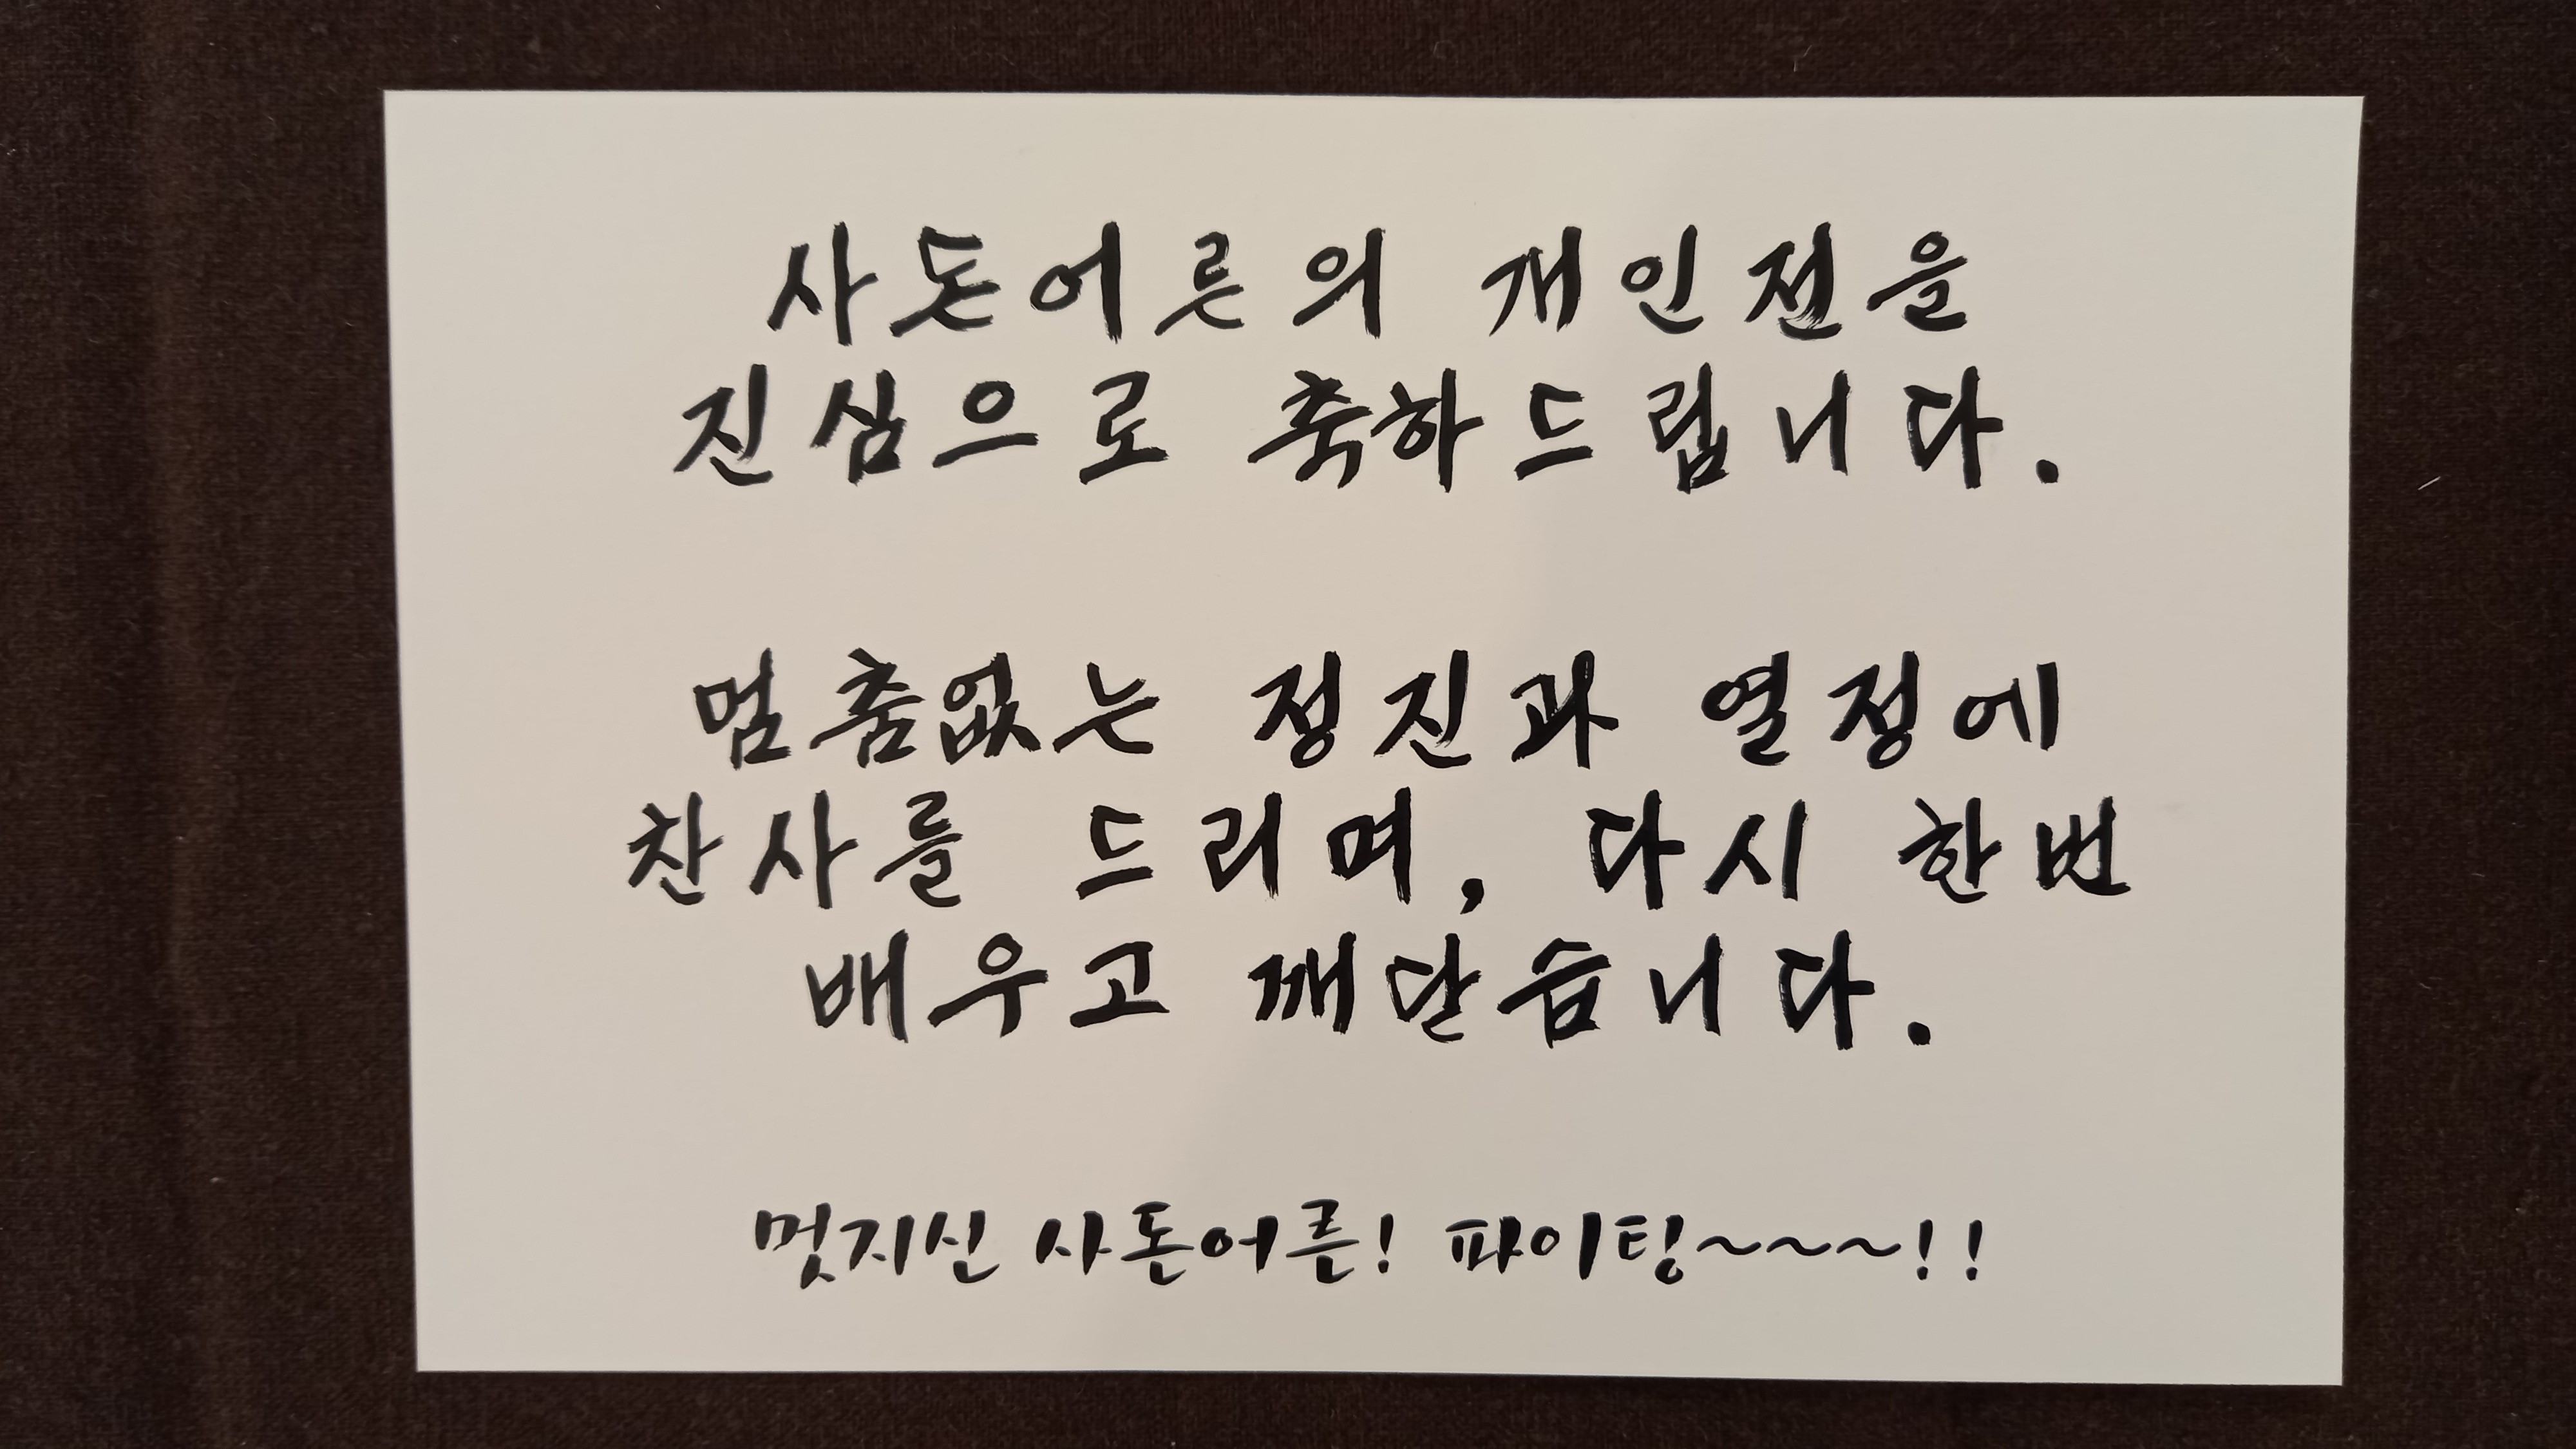 사돈어른의 개인전을
진심으로 축하드립니다.
멈춤없는 정진과 열정에
찬사를 드리며, 다시 한번
배우고 깨닫습니다.
멋지신 사돈어른! 파이팅~~~!!